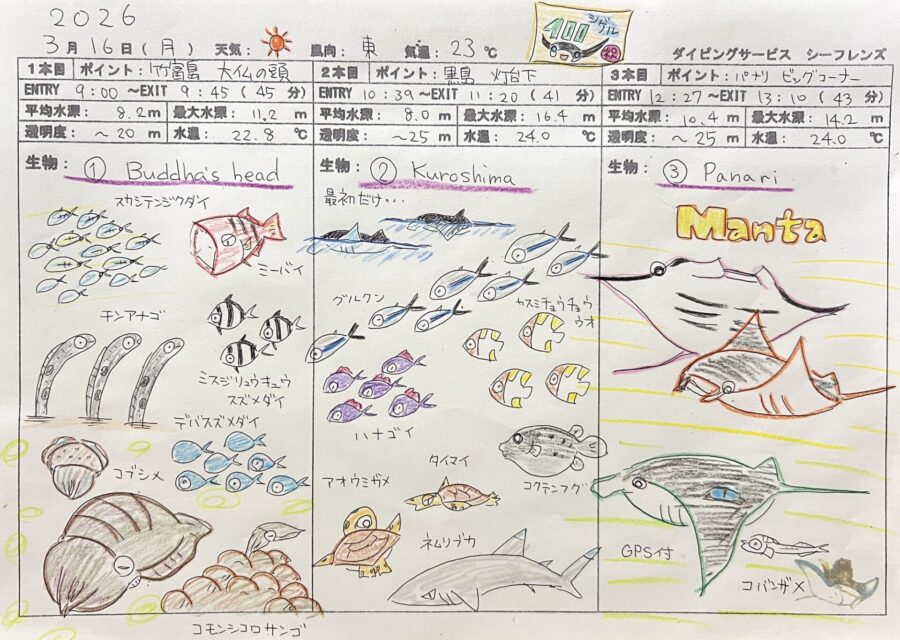 2026
3月16日(月) 天気: 風向: 東 気温: 23℃
400 シゲル 祝
ダイビングサービス シーフレンズ
1本目 ポイント: 竹富島 大仏の頭
ENTRY 9:00 ~EXIT 9:45 (45 分)
平均水深: 8.2m 最大水深: 11.2 m
透明度: ~20 m 水温: 22.8 ℃
生物: ① Buddha's head
スカシテンジクダイ
ミーバイ
チンアナゴ
ミスジリュウキュウ
スズメダイ
デバスズメダイ
コブシメ
コモンシコロサンゴ
2本目 ポイント: 黒島 灯台下
ENTRY 10:39 ~EXIT 11:20 (41 分)
平均水深: 8.0 m 最大水深: 16.4 m
透明度: ~25m 水温: 24.0 ℃
生物: ② Kuroshima
最初だけ・・・
グルクン
カスミチョウチョウ
ウオ
ハナゴイ
タイマイ
アオウミガメ
コクテンフグ
ネムリブカ
3本目 ポイント: パナリ ビッグコーナー
ENTRY 12:27 ~EXIT 13:10 (43 分)
平均水深: 10.4 m 最大水深: 14.2 m
透明度: ~25 m 水温: 24.0 ℃
生物: ③ Panari
Manta
GPS付
コバンザメ